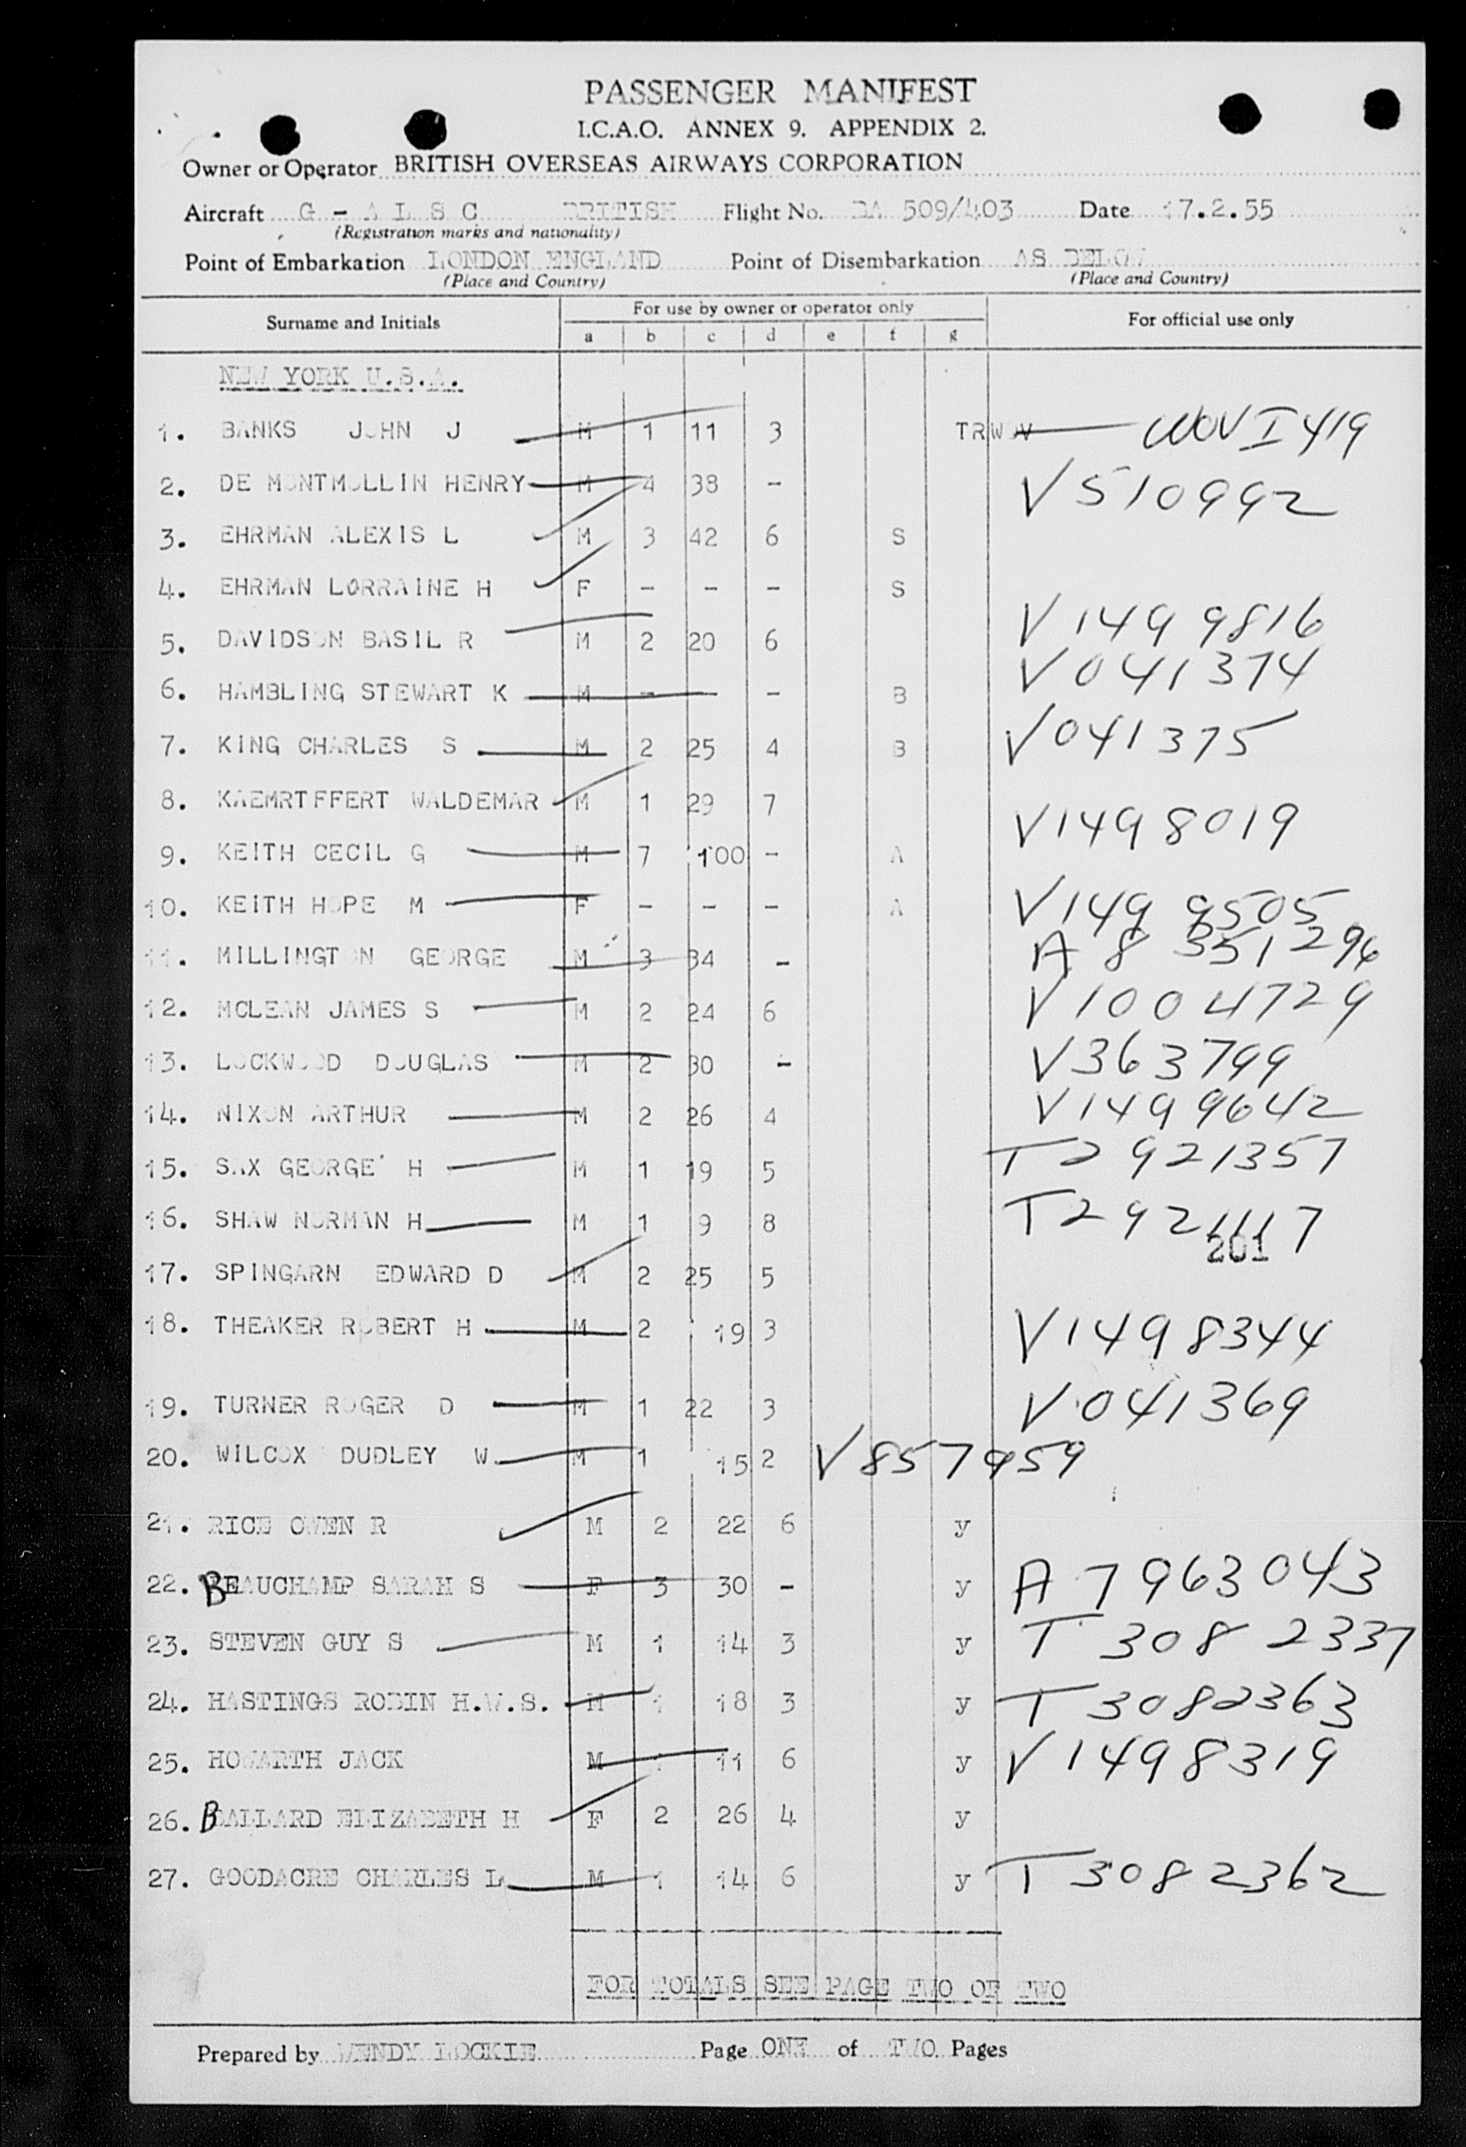 PASSENGER MANIFEST
I.C.A.O. ANNEX 9. APPENDIX 2.
Owner or Operator BRITISH OVERSEAS AIRWAYS CORPORATION
Aircraft G - A L S C BRITISH Flight No. BA 509/403 Date 17.2.55
(Registration marks and nationality)
Point of Embarkation LONDON ENGLAND Point of Disembarkation AS BELOW
(Place and Country) (Place and Country)
Surname and Initials For use by owner or operator only For official use only
a b c d e f g
NEW YORK U.S.A.
1. BANKS JOHN J M 1 11 3 TRWOV WOV I 419
2. DE MONTMOLLIN HENRY M 4 38 - V510992
3. EHRMAN ALEXIS L M 3 42 6 S
4. EHRMAN LORRAINE H F - - - S
5. DAVIDSON BASIL R M 2 20 6 V1499816
6. HAMBLING STEWART K M - - B V041374
7. KING CHARLES S M 2 25 4 B V041375
8. KAEMRTFFERT WALDEMAR M 1 29 7
9. KEITH CECIL G M 7 100 - A V1498019
10. KEITH HOPE M F - - - A V149 9505
11. MILLINGTON GEORGE M 3 34 - A8 351296
12. MCLEAN JAMES S M 2 24 6 V1004729
13. LOCKWOOD DOUGLAS M 2 30 - V363799
14. NIXON ARTHUR M 2 26 4 V1499642
15. SAX GEORGE H M 1 19 5 T2921357
16. SHAW NORMAN H M 1 9 8 T2921117
201
17. SPINGARN EDWARD D M 2 25 5
18. THEAKER ROBERT H M 2 19 3 V1498344
19. TURNER ROGER D M 1 22 3 V041369
20. WILCOX DUDLEY W M 1 15 2 V857959
21. RICE OWEN R M 2 22 6 y
22. BEAUCHAMP SARAH S F 3 30 - y A7963043
23. STEVEN GUY S M 1 14 3 y T 308 2337
24. HASTINGS ROBIN H.W.S. M 1 18 3 y T3082363
25. HOWARTH JACK M 1 11 6 y V1498319
26. BALLARD ELIZABETH H F 2 26 4 y
27. GOODACRE CHARLES L M 1 14 6 y T3082362
FOR TOTALS SEE PAGE TWO OF TWO
Prepared by WENDY LOCKIE Page ONE of TWO Pages